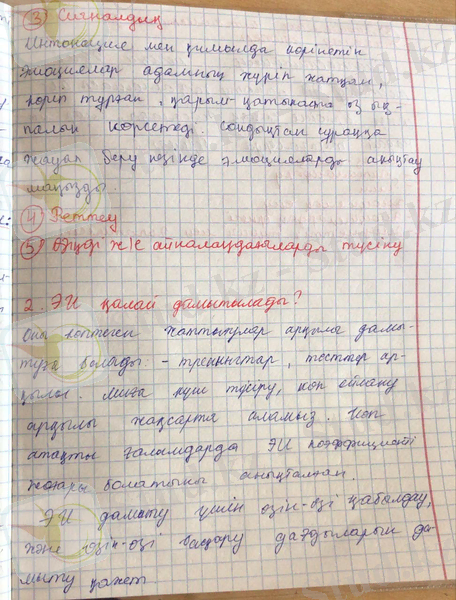 ③ Сигналдық
Интонация мен қимылда көрінетін
эмоциялар адамның жүріп жатқан,
көріп тұрған, қарым-қатынаста өз ық-
палын көрсетеді. Сондықтан сұраққа
жауап беру кезінде эмоцияларды анықтау
маңызды.
④ Реттеу
⑤ Өзіңді ж/е айналаңдағыларды түсіну
2. ЭИ қалай дамытылады?
Оны көптеген жаттығулар арқылы дамы-
туға болады: - тренингтар, тесттер ар-
қылы. Миға күш түсіру, көп ойлану
арқылы жақсарта аламыз. Көп
атақты ғалымдарда ЭИ коэффициенті
жоғары болатыны анықталған
ЭИ дамыту үшін өзін-өзі қабылдау,
және өзін-өзі басқару дағдыларын да-
мыту қажет